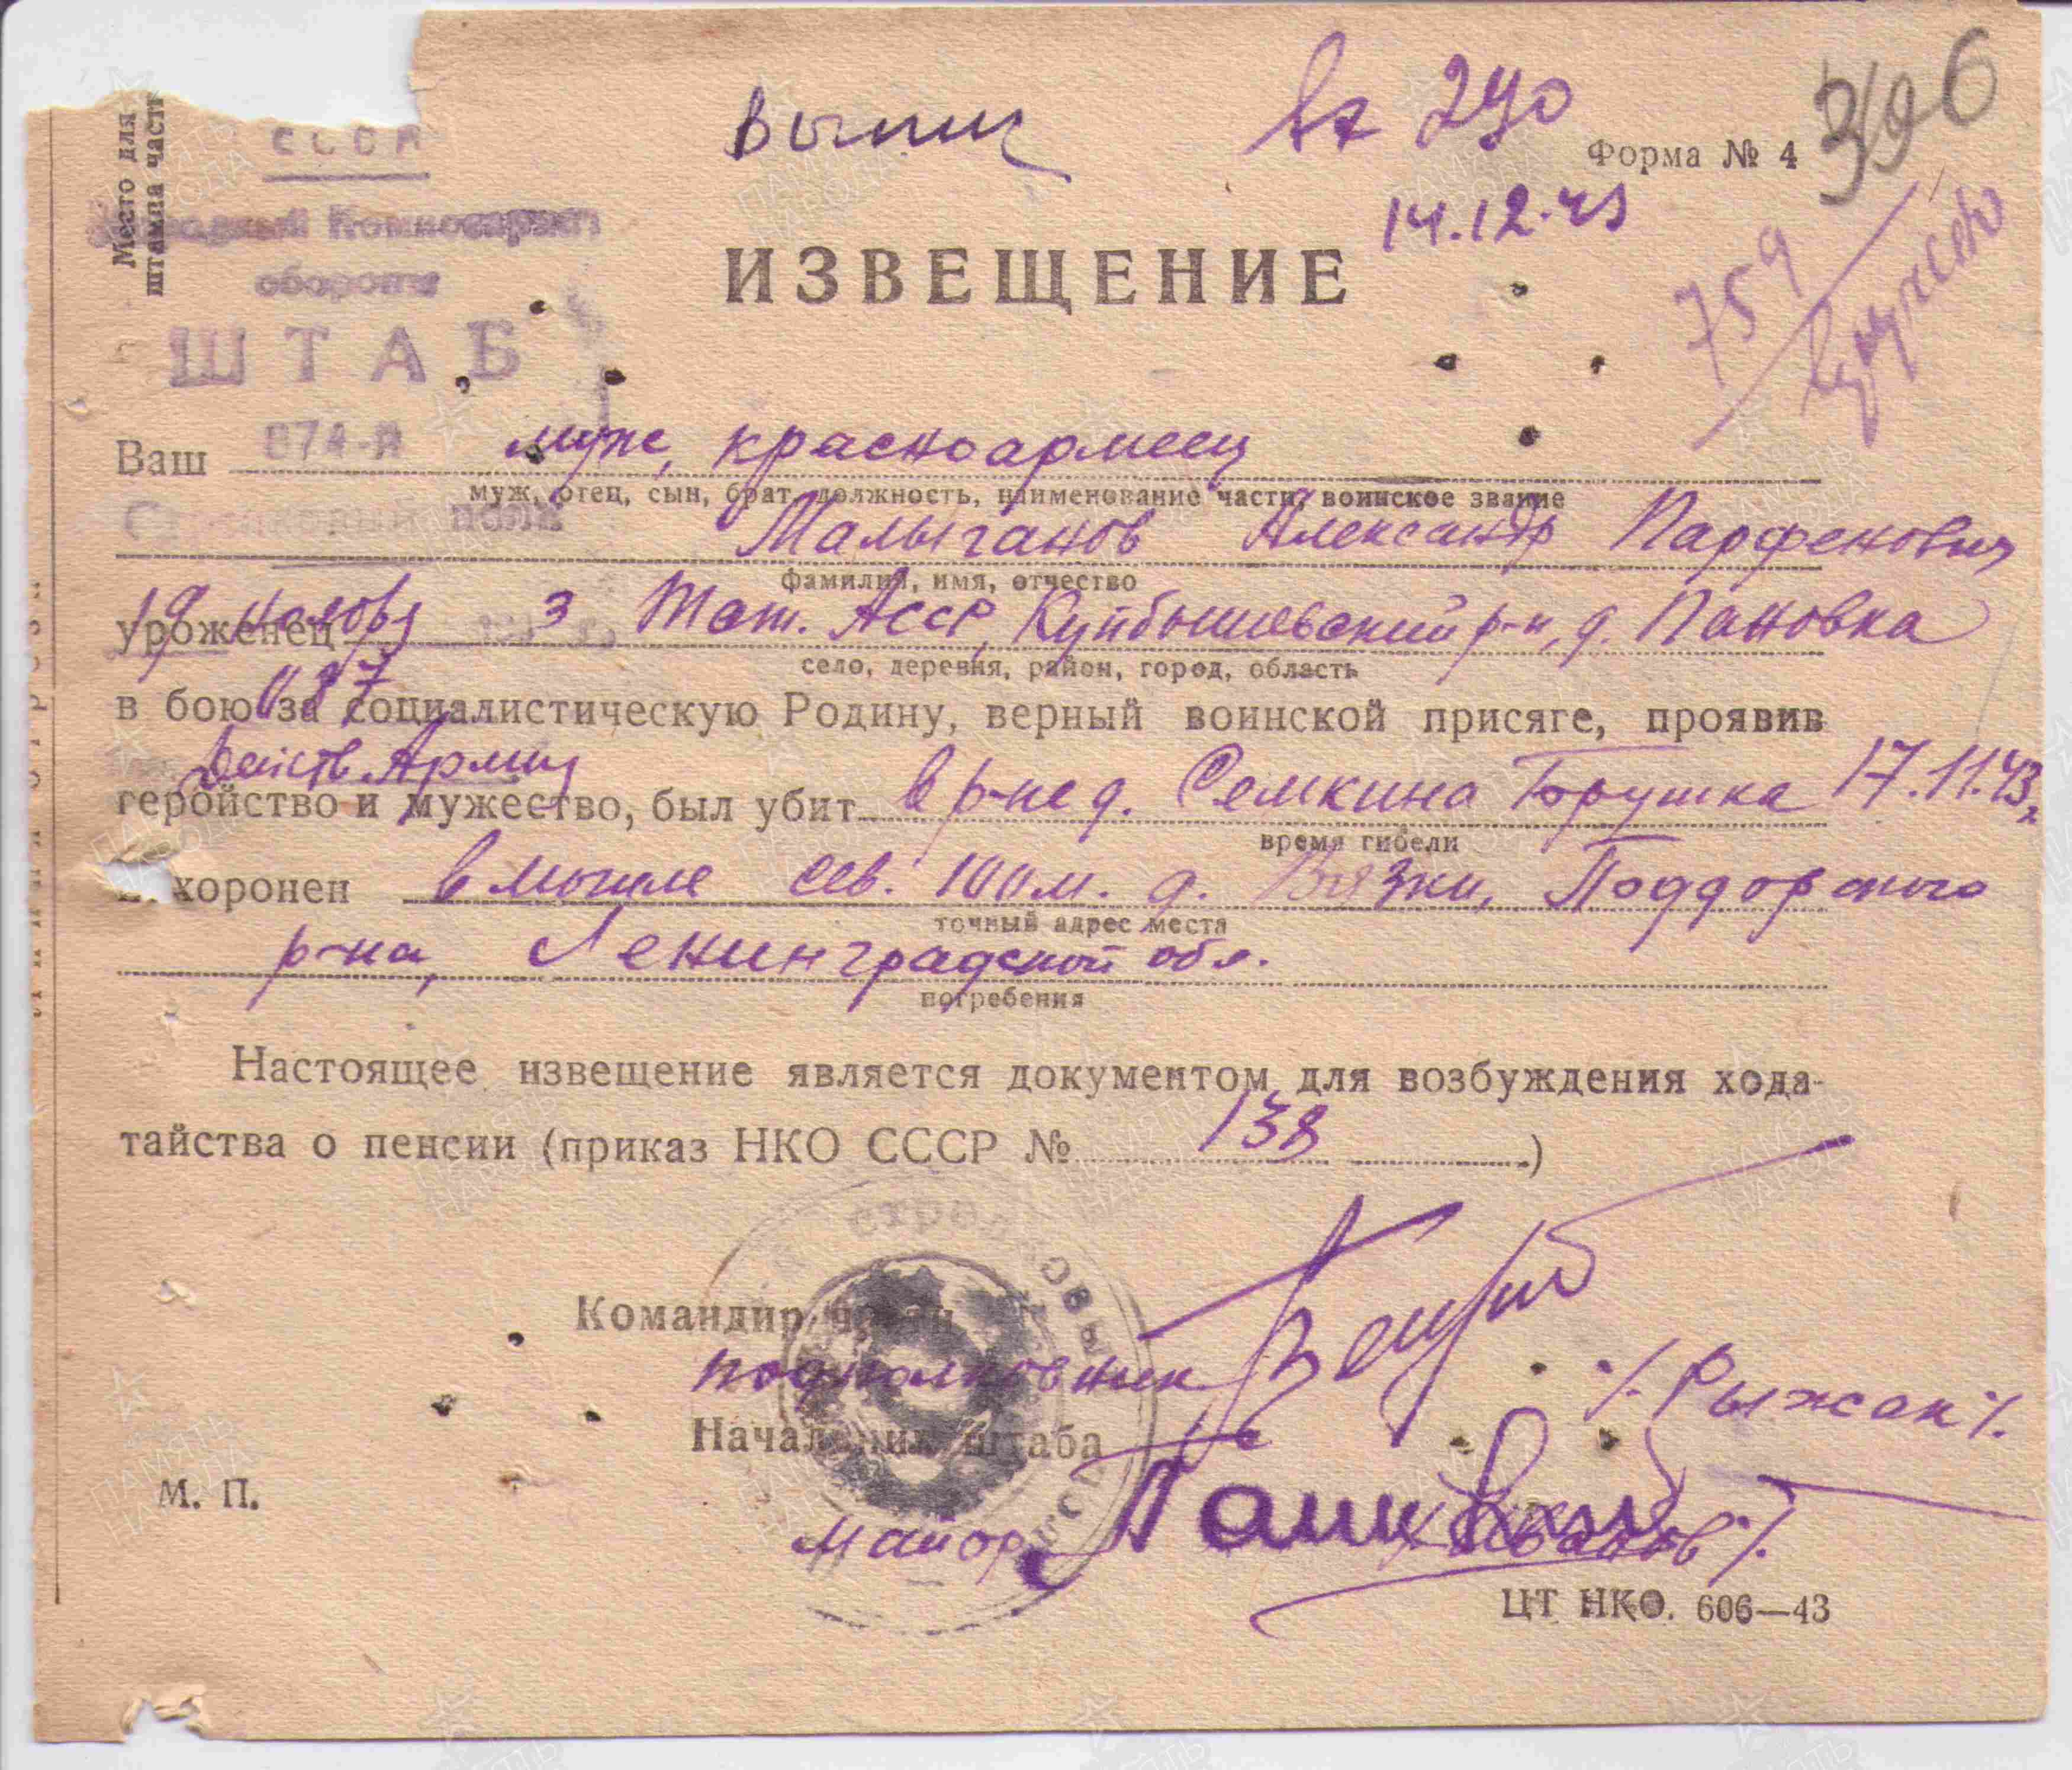 Место для
штампа част
СССР
Вх 290
396
Форма № 4
Народный Комиссариат
обороны
14.12.43
ИЗВЕЩЕНИЕ
759
ШТАБ
874-й
Ваш муж, красноармеец
муж, отец, сын, брат, должность, наименование части, воинское звание
Стрелковый полк
Малыганов Александр Парфенович
фамилия, имя, отчество
19 ноября 3
уроженец Тат. АССР, Куйбышевский р-н, д. Пановка
село, деревня, район, город, область
в бою за социалистическую Родину, верный воинской присяге, проявив
Действ. Армия
геройство и мужество, был убит в р-не д. Семкина Горушка 17.11.43
время гибели
хоронен в могиле сев. 100 м. д. Вязки, Поддорского
точный адрес места
р-на, Ленинградской обл.
погребения
Настоящее извещение является документом для возбуждения хода-
тайства о пенсии (приказ НКО СССР № 138 )
Командир части
подполковник /Рыжак/.
Начальник штаба
М. П.
майор
ЦТ НКО. 606—43
ПАМЯТЬ
НАРОДА